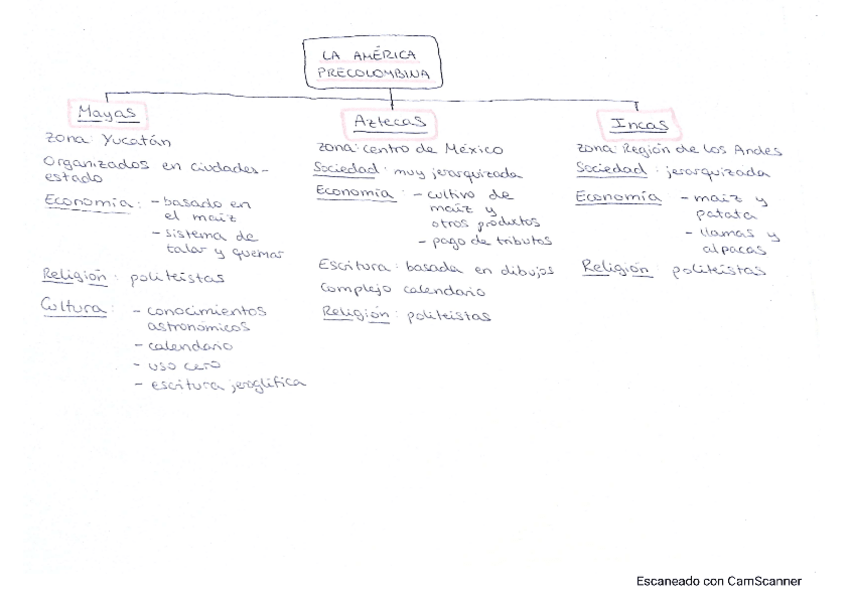 LA AMÉRICA
PRECOLOMBINA
Mayas
Zona: Yucatán
Organizados en ciudades-
estado
Economía: - basado en
el maíz
- sistema de
talar y quemar
Religión: politeístas
Cultura: - conocimientos
astronómicos
- calendario
- uso cero
- escritura jeroglífica
Aztecas
Zona: centro de México
Sociedad: muy jerarquizada
Economía: - cultivo de
maíz y
otros productos
- pago de tributos
Escritura: basada en dibujos
Complejo calendario
Religión: politeístas
Incas
Zona: Región de los Andes
Sociedad: jerarquizada
Economía - maíz y
patata
- llamas y
alpacas
Religión: politeístas
Escaneado con CamScanner